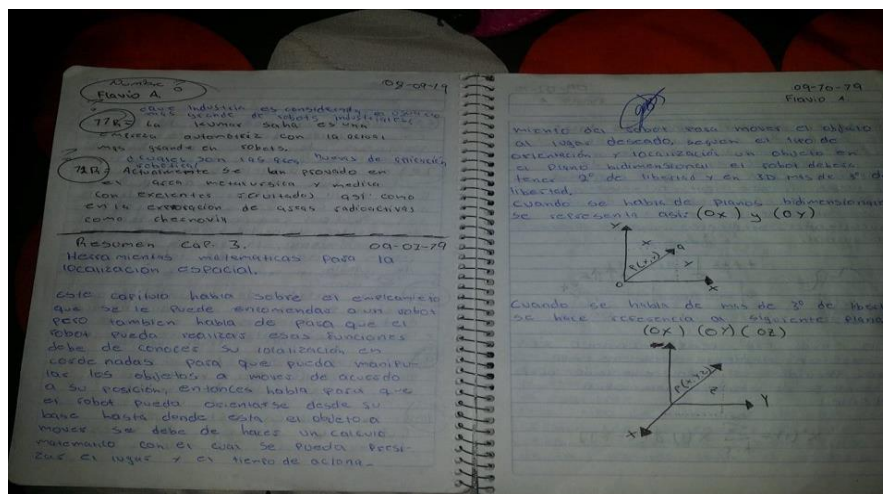 Nombre
Flavio A.
09-09-19
industria es considerada
mas grande de robots
77R= La es una
empresa automotriz con la actual
mas grande en robots.
cuales son las
72R= Actualmente se han provado en
el area metalurgica y medica
con exelentes resultados así como
en la de areas radioactivas
como chernovil
Resumen cap. 3.
Herramientas matematicas para la
localización espacial.
este capitulo habla sobre el
que se le puede encomendar a un robot
pero tambien habla de para que el
robot pueda realizar esas funciones
debe de conocer su localización en
cordenadas para que pueda manipu-
lar los objetos a mover de acuerdo
a su posición, entonces habla para que
el robot pueda orientarse desde su
base hasta donde esta el objeto a
mover se debe de hacer un calculo
matematico con el cual se pueda presi-
zar el lugar y el tiempo de
09-10-19
Flavio A.
miento del robot para mover el objeto
al lugar deseado, según el tipo de
orientación y localización un objeto en
el plano bidimensional el robot debera
tener 2° de libertad y en 3D mas de 3° de
libertad.
Cuando se habla de planos bidimensionales
se representa así: (OX) y (OY)
Y
x
a
P(x,y)
y
O
X
Cuando se habla de mas de 3° de
se hace referencia al siguiente plano
(OX) (OY) (OZ)
P(x,y,z)
Y
X